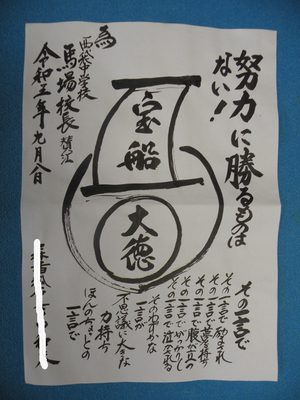 努力に勝るものは
ない！
宝船
大徳
為
西袋中学校
馬場校長賛江
令和五年九月八日
その一言で
その一言で励まされ
その一言で夢を持ち
その一言で腹が立つ
その一言でがっかりし
その一言で泣かされる
そのわずかな
一言が
不思議に大きな
力持ち
ほんのちょっとの
一言で